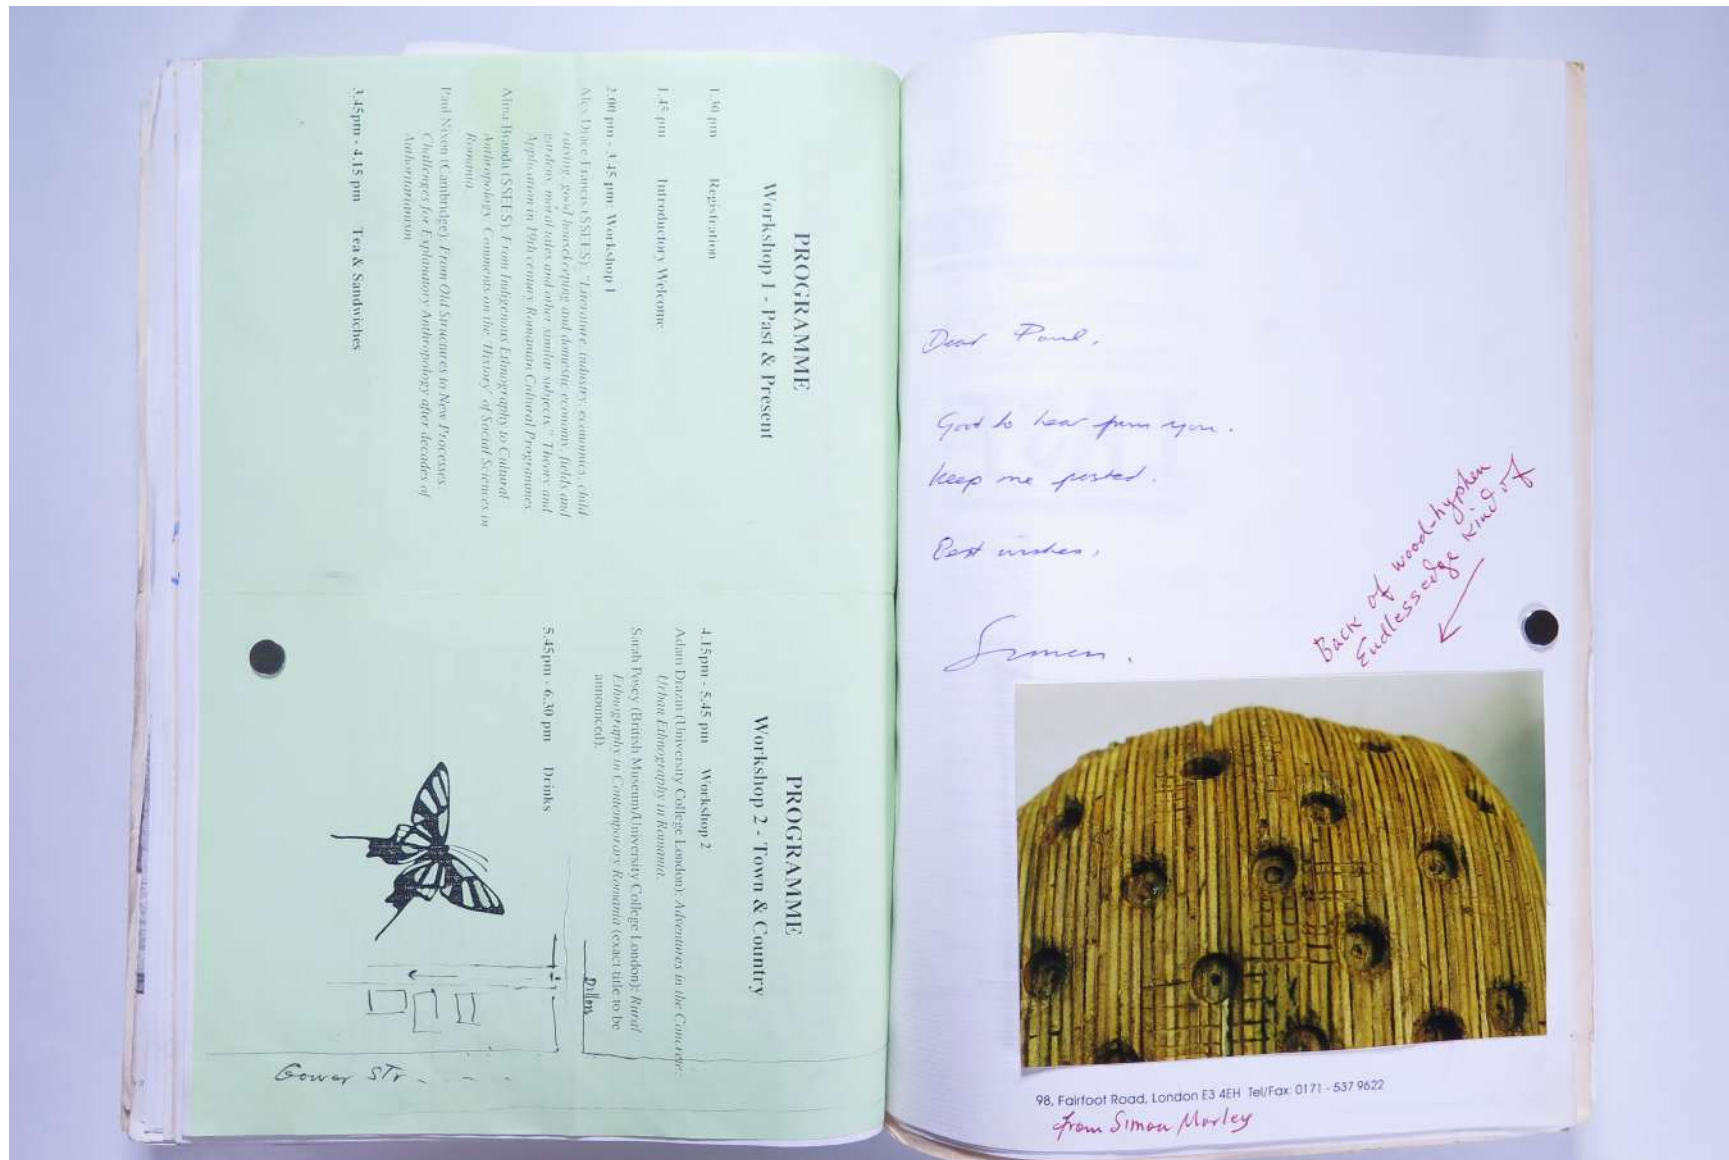 PROGRAMME
Workshop 1 - Past & Present
1.30 pm Registration
1.45 pm Introductory Welcome
2.00 pm - 3.45 pm: Workshop 1
Alex Drace Francis (SSEES): "Literature, industry, economics, child
raising, good housekeeping and domestic economy, fields and
gardens, moral tales and other similar subjects." Theory and
Application in 19th century Romanian Cultural Programmes
Alina Branda (SSEES): From Indigenous Ethnography to Cultural
Anthropology: Comments on the 'History' of Social Sciences in
Romania
Paul Nixon (Cambridge): From Old Structures to New Processes:
Challenges for Explanatory Anthropology after decades of
Authoritarianism
3.45pm - 4.15 pm Tea & Sandwiches
PROGRAMME
Workshop 2 - Town & Country
4.15pm - 5.45 pm Workshop 2
Adam Drazin (University College London): Adventures in the Concrete:
Urban Ethnography in Romania.
Sarah Posey (British Museum/University College London): Rural
Ethnography in Contemporary Romania (exact title to be
announced).
5.45pm - 6.30 pm Drinks
Dillons
Gower Str - - - -
Dear Paul,
Good to hear from you.
Keep me posted.
Best wishes,
Simon.
Back of wood-hyphen
Endlessedge kind of
98, Fairfoot Road, London E3 4EH Tel/Fax: 0171 - 537 9622
from Simon Morley